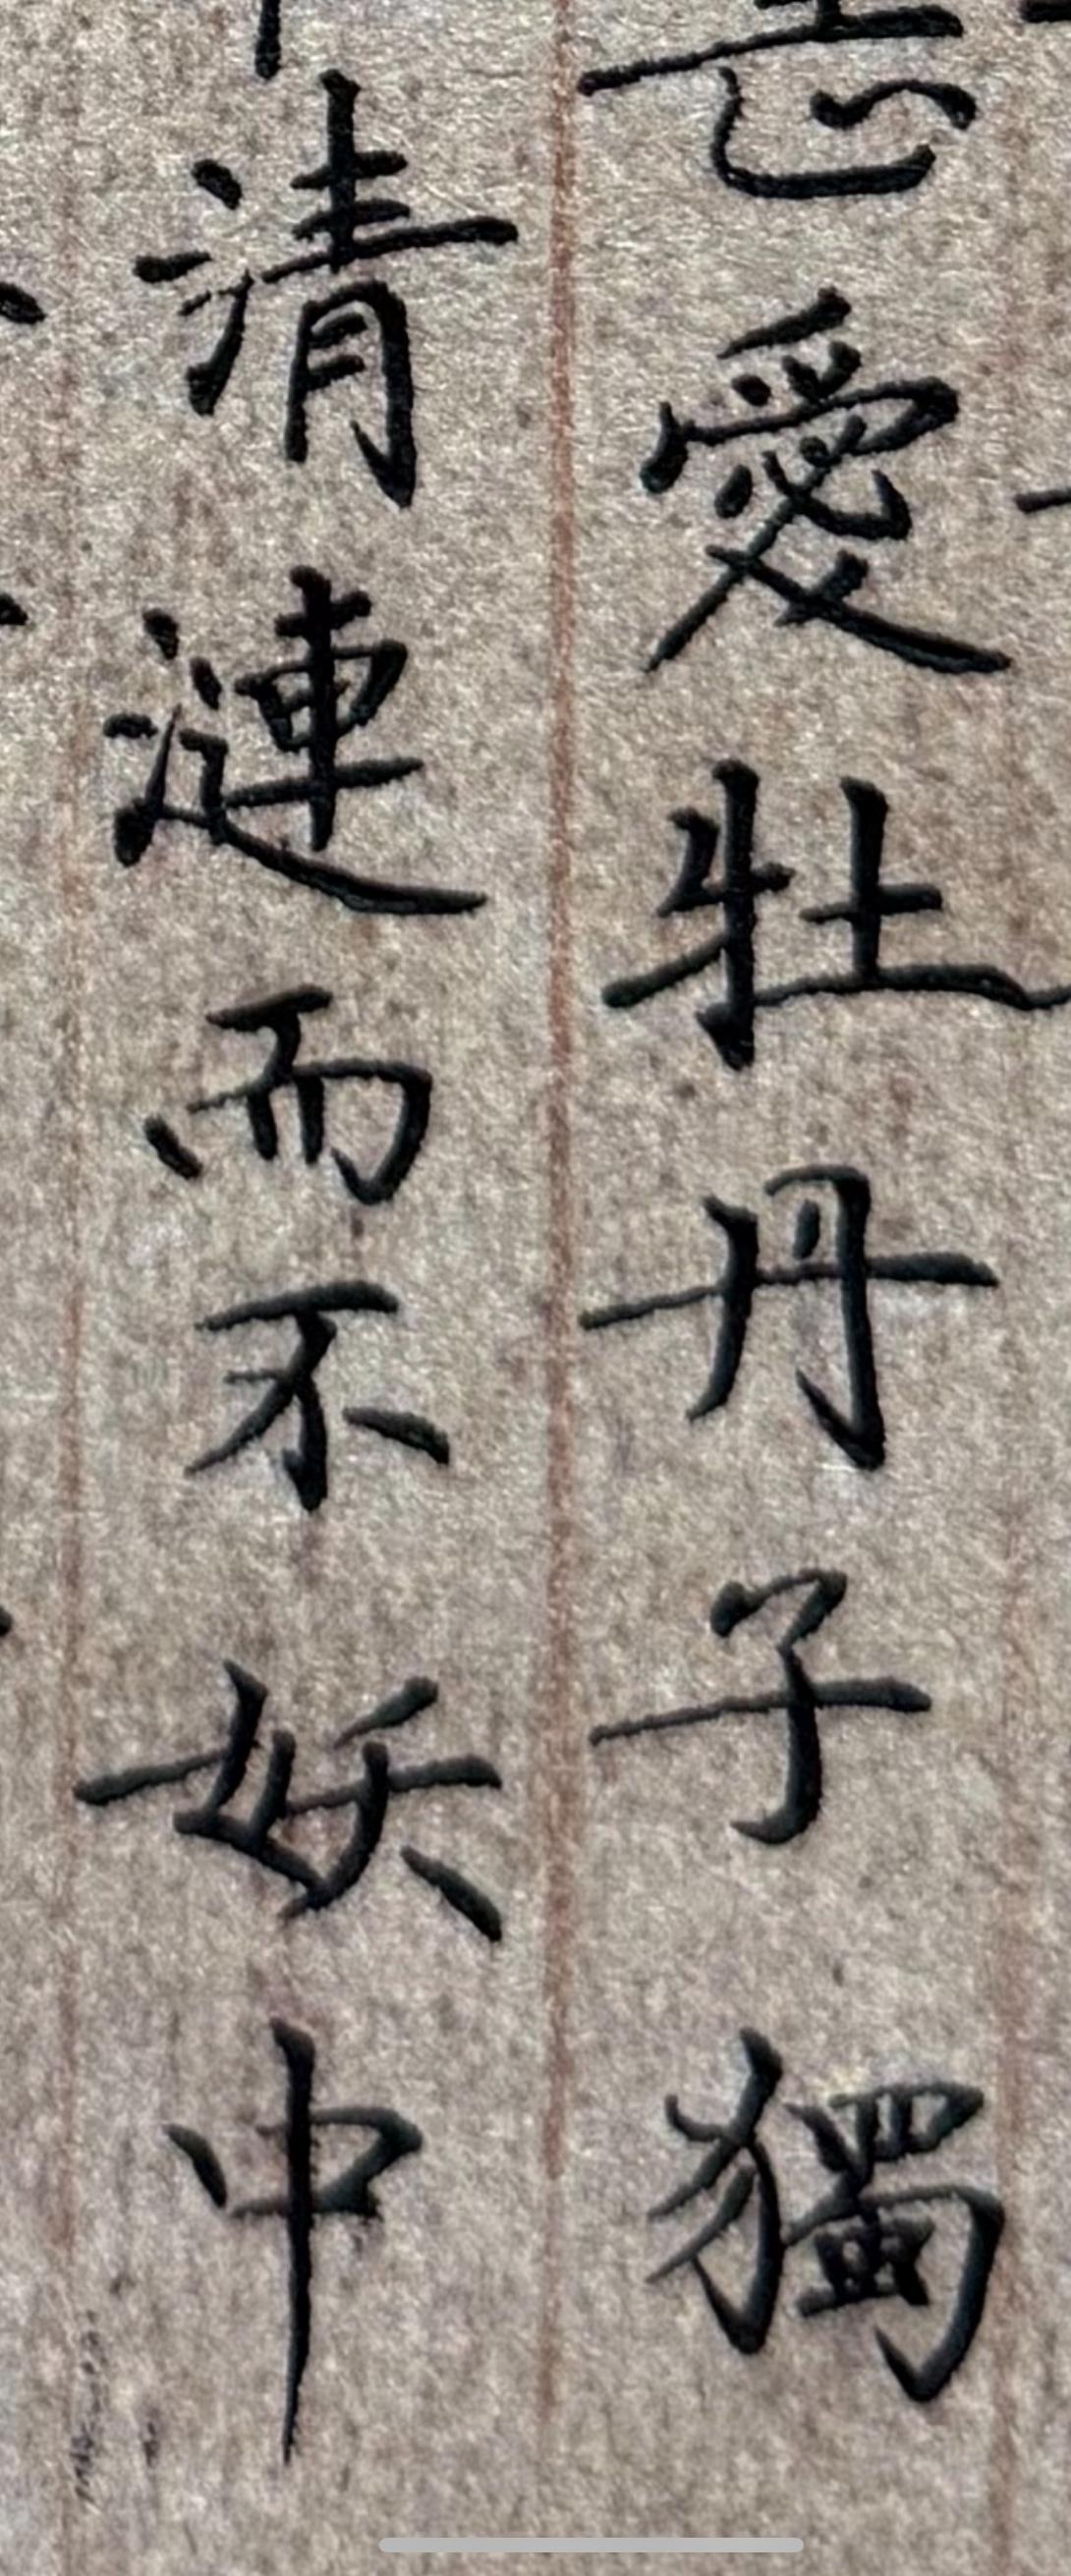 甚愛牡丹子獨
清漣而不妖中